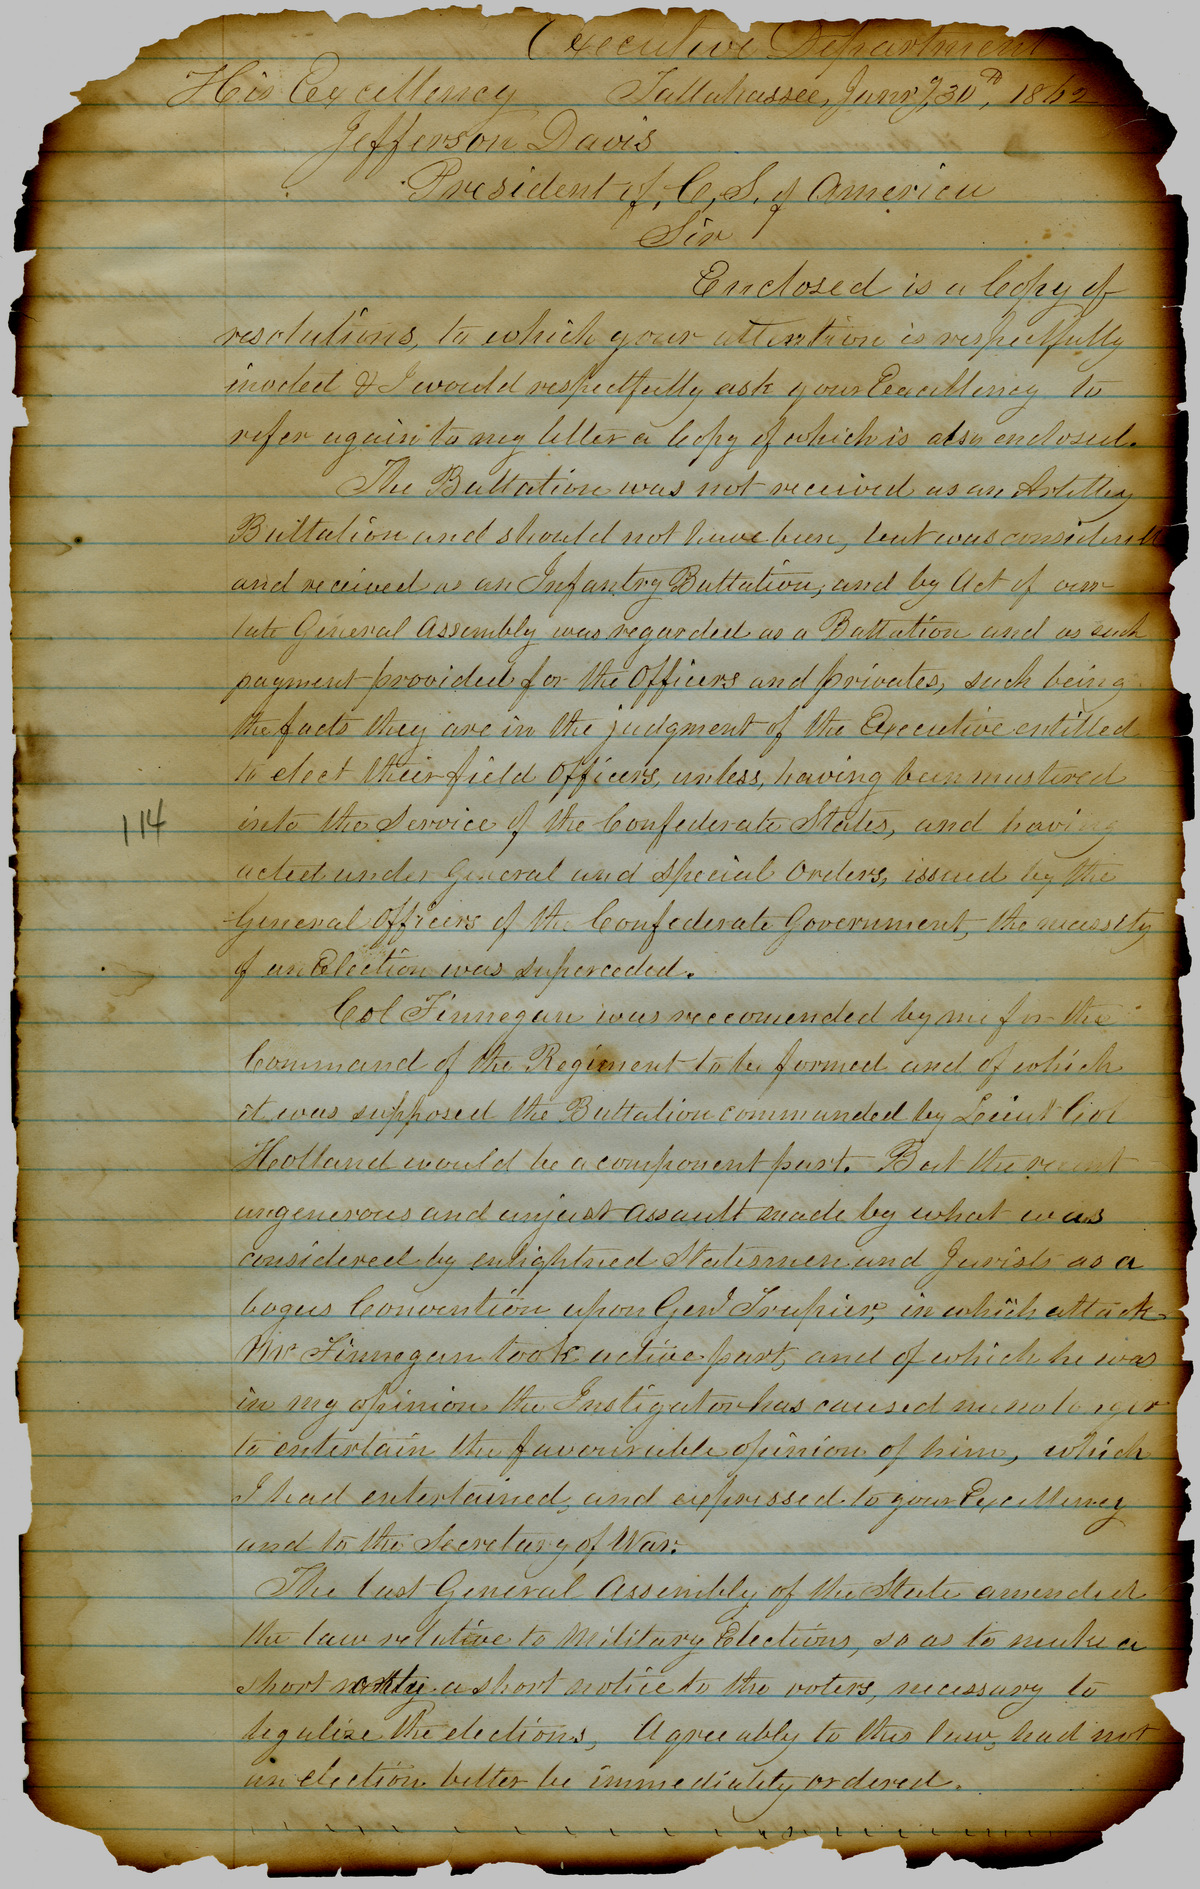 Executive Department
His Excellency Tallahassee, Jany 30th, 1862
Jefferson Davis
President of, C, S, of America
Sir
Enclosed is a Copy of
resolutions, to which your attention is respectfully
invited & I would respectfully ask your Excellency to
refer again to my letter a Copy of which is also enclosed.
The Battalion was not received as an Artillery
Battalion and should not have been, but was considered
and received as an Infantry Battalion, and by Act of our
late General Assembly was regarded as a Battalion and as such
payment provided for the Officers and privates, such being
the facts they are in the judgment of the Executive entitled
to elect their field Officers, unless, having been mustered
114
into the Service of the Confederate States, and having
acted under General and Special Orders, issued by the
General Officers of the Confederate Government, the necessity
of an Election was superceded.
Col Finnegan was reccomended by me for the
Command of the Regiment to be formed and of which
it was supposed the Battalion commanded by Leiut Col
Holland would be a component part. But the recent
ungenerous and unjust assault made by what was
considered by enlightned Statesmen and Jurists as a
bogus Convention upon Genl Trapier, in which attack
Mr Finnegan took active part, and of which he was
in my opinion the Instigator has caused me no longer
to entertain the favourable opinion of him, which
I had entertained, and expressed to your Excellency
and to the Secretary of War.
The last General Assembly of the State amended
the law relative to Military Elections, so as to make a
short a short notice to the voters, necessary to
legalise the elections, Agreeably to this law, had not
an election better be immediately ordered.